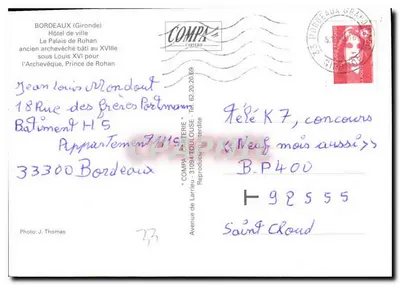 BORDEAUX (Gironde)
Hôtel de ville
Le Palais de Rohan
ancien archevêché bâti au XVIIIe
sous Louis XVI pour
l'Archevêque, Prince de Rohan
COMPA
CARTERIE
Jean Louis Mondout
18 Rue des frères Portmann
Bâtiment H5
Appartement 115
33300 Bordeaux
" COMPA CARTERIE "
Avenue de Larrieu - 31094 TOULOUSE - Tél. 62.20.20.69
Reproduction interdite
Télé K7, concours
« Neuf mois aussi »
B.P 400
T 92555
Saint Cloud
Photo: J. Thomas
33